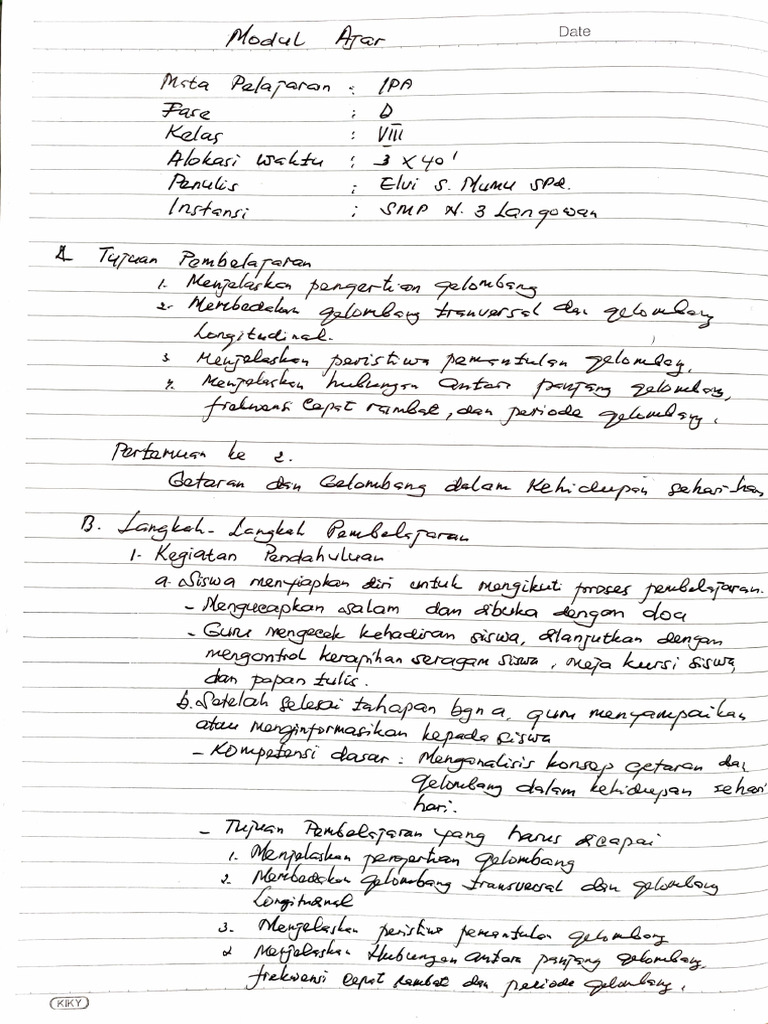 Modul Ajar
Date
Mata Pelajaran : IPA
Fase : D
Kelas : VIII
Alokasi Waktu : 3 x 40'
Penulis : Elvi S. Mumu SPd.
Instansi : SMP N. 3 Langowan
A Tujuan Pembelajaran
1. Menjelaskan pengertian gelombang
2. Membedakan gelombang tranversal dan gelombang
Longitudinal.
3. Menjelaskan peristiwa pemantulan gelombang.
4. Menjelaskan hubungan antara panjang gelombang,
frekwensi cepat rambat, dan periode gelombang.
Pertemuan ke 2.
Getaran dan Gelombang dalam Kehidupan sehari-hari
B. Langkah-Langkah Pembelajaran
1. Kegiatan Pendahuluan
a. Siswa menyiapkan diri untuk mengikuti proses pembelajaran.
- Mengucapkan salam dan dibuka dengan doa
- Guru mengecek kehadiran siswa, dilanjutkan dengan
mengontrol kerapihan seragam siswa, meja kursi siswa,
dan papan tulis.
b. Setelah selesai tahapan bgn a, guru menyampaikan
atau menginformasikan kepada siswa
- Kompetensi dasar : Menganalisis konsep getaran dan
gelombang dalam kehidupan sehari
hari.
- Tujuan Pembelajaran yang harus dicapai
1. Menjelaskan pengertian gelombang
2. Membedakan gelombang transversal dan gelombang
Longitudinal
3. Menjelaskan peristiwa pemantulan gelombang
4 Menjelaskan Hubungan antara panjang gelombang,
frekwensi cepat rambat dan periode gelombang.
KIKY